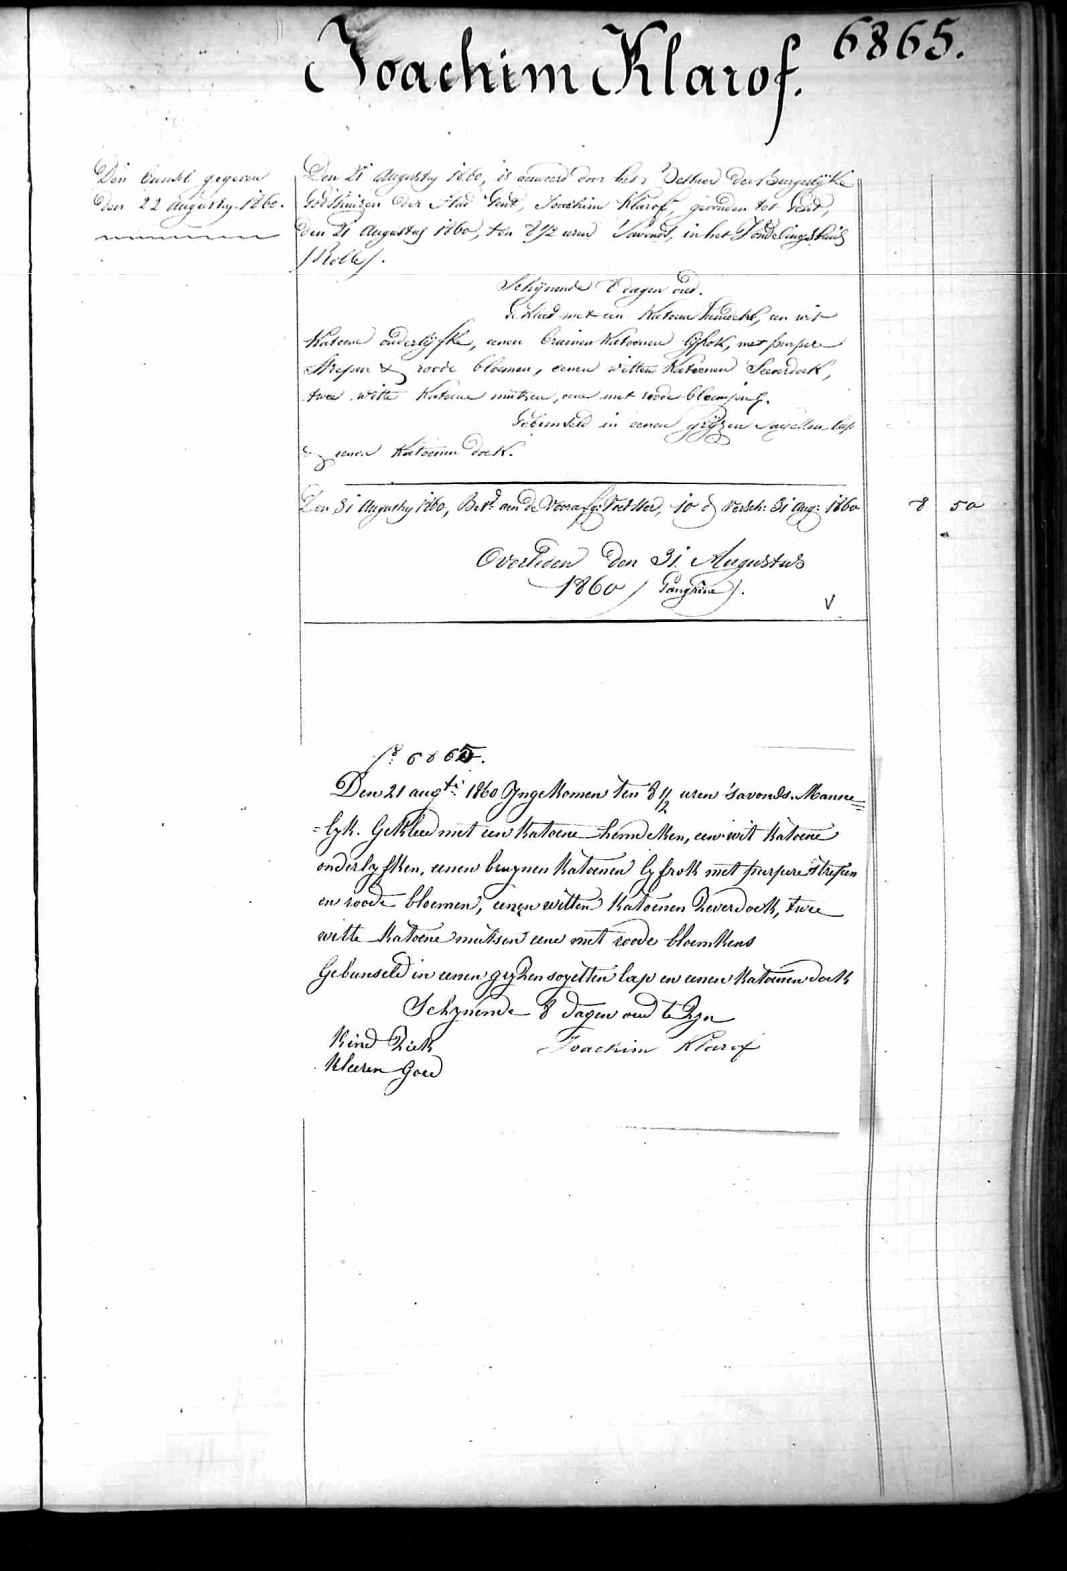 Joachim Klarof. 6865.
Den bundel gegeven
den 22 Augusty 1860.
Den 21 Augusty 1860, is aenveerd door het Bestier der Burgerlijke
Godshuizen der Stad Gent, Joachim Klarof, gevonden tot Gent,
den 21 Augustus 1860, ten 8 1/2 uren 's avonds, in het Vondelingshuis
/: Rolle :/.
Schijnende 8 dagen oud.
Gekleed met een Katoene hemdeke, een wit
Katoene onderlijfke, eenen bruinen Katoenen lijfrok, met purpere
strepen & roode bloemen, eenen witten Katoenen Zeeverdoek,
twee witte Katoene mutsen, eene met roode bloempjes.
Gebunseld in eenen grijzen sayetten lap
& eenen Katoenen doek.
Den 31 Augusty 1860, Bet.d aen de Voorafg: Voedster, 10 d versch: 31 Aug: 1860 8 50
Overleden den 31 Augustus
1860 / Gangrène /.
V
N.º 6865.
Den 21 aug.ti 1860 Ingekomen ten 8 1/2 uren 'savonds. Manne=
=lyk. Gekleed met een katoene hemdeken, een wit katoene
onderlyfken, eenen bruynen katoenen lyfrok met purpere strepen
en roode bloemen, eenen witten katoenen Zeverdoek, twee
witte katoene mutsen eene met roode bloemkens
Gebunseld in eenen gryzen soyetten lap en eenen katoenen doek
Schynende 8 dagen oud te Zyn
Kind Ziek Joachim Klarof
kleeren Goed